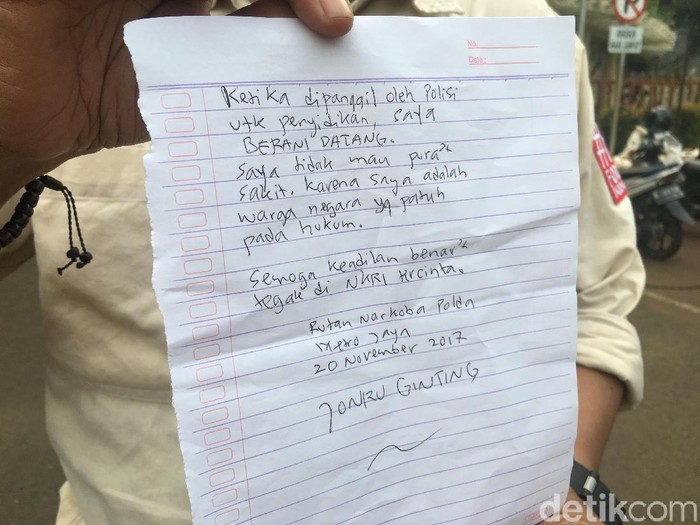 No:
Date:
Ketika dipanggil oleh Polisi
utk penyidikan, saya
BERANI DATANG.
Saya tidak mau pura²
sakit. karena saya adalah
warga negara yg patuh
pada hukum.
Semoga keadilan benar²
tegak di NKRI tercinta.
Rutan Narkoba Polda
Metro Jaya
20 November 2017
JONRU GINTING
detikcom